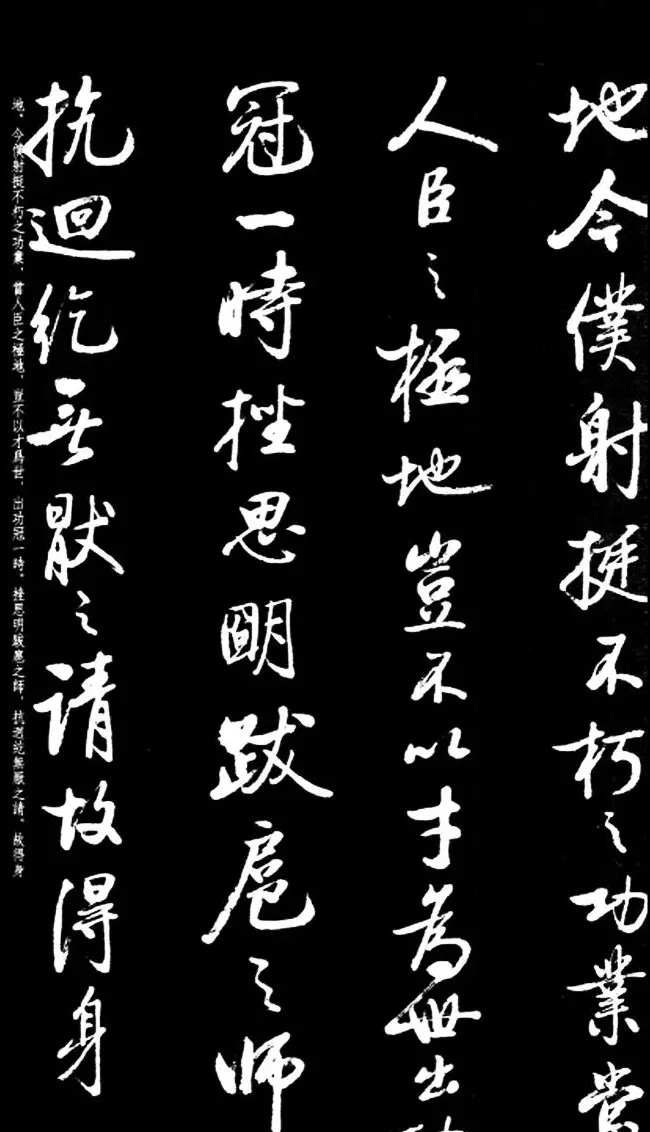 地今僕射挺不朽之功業當
人臣之極地豈不以才為世出功
冠一時挫思明跋扈之師
抗迴紇無猒之請故得身
地、今僕射挺不朽之功業，當人臣之極地，豈不以才爲世，出功冠一時。挫思明跋扈之師，抗迴紇無厭之請。故得身